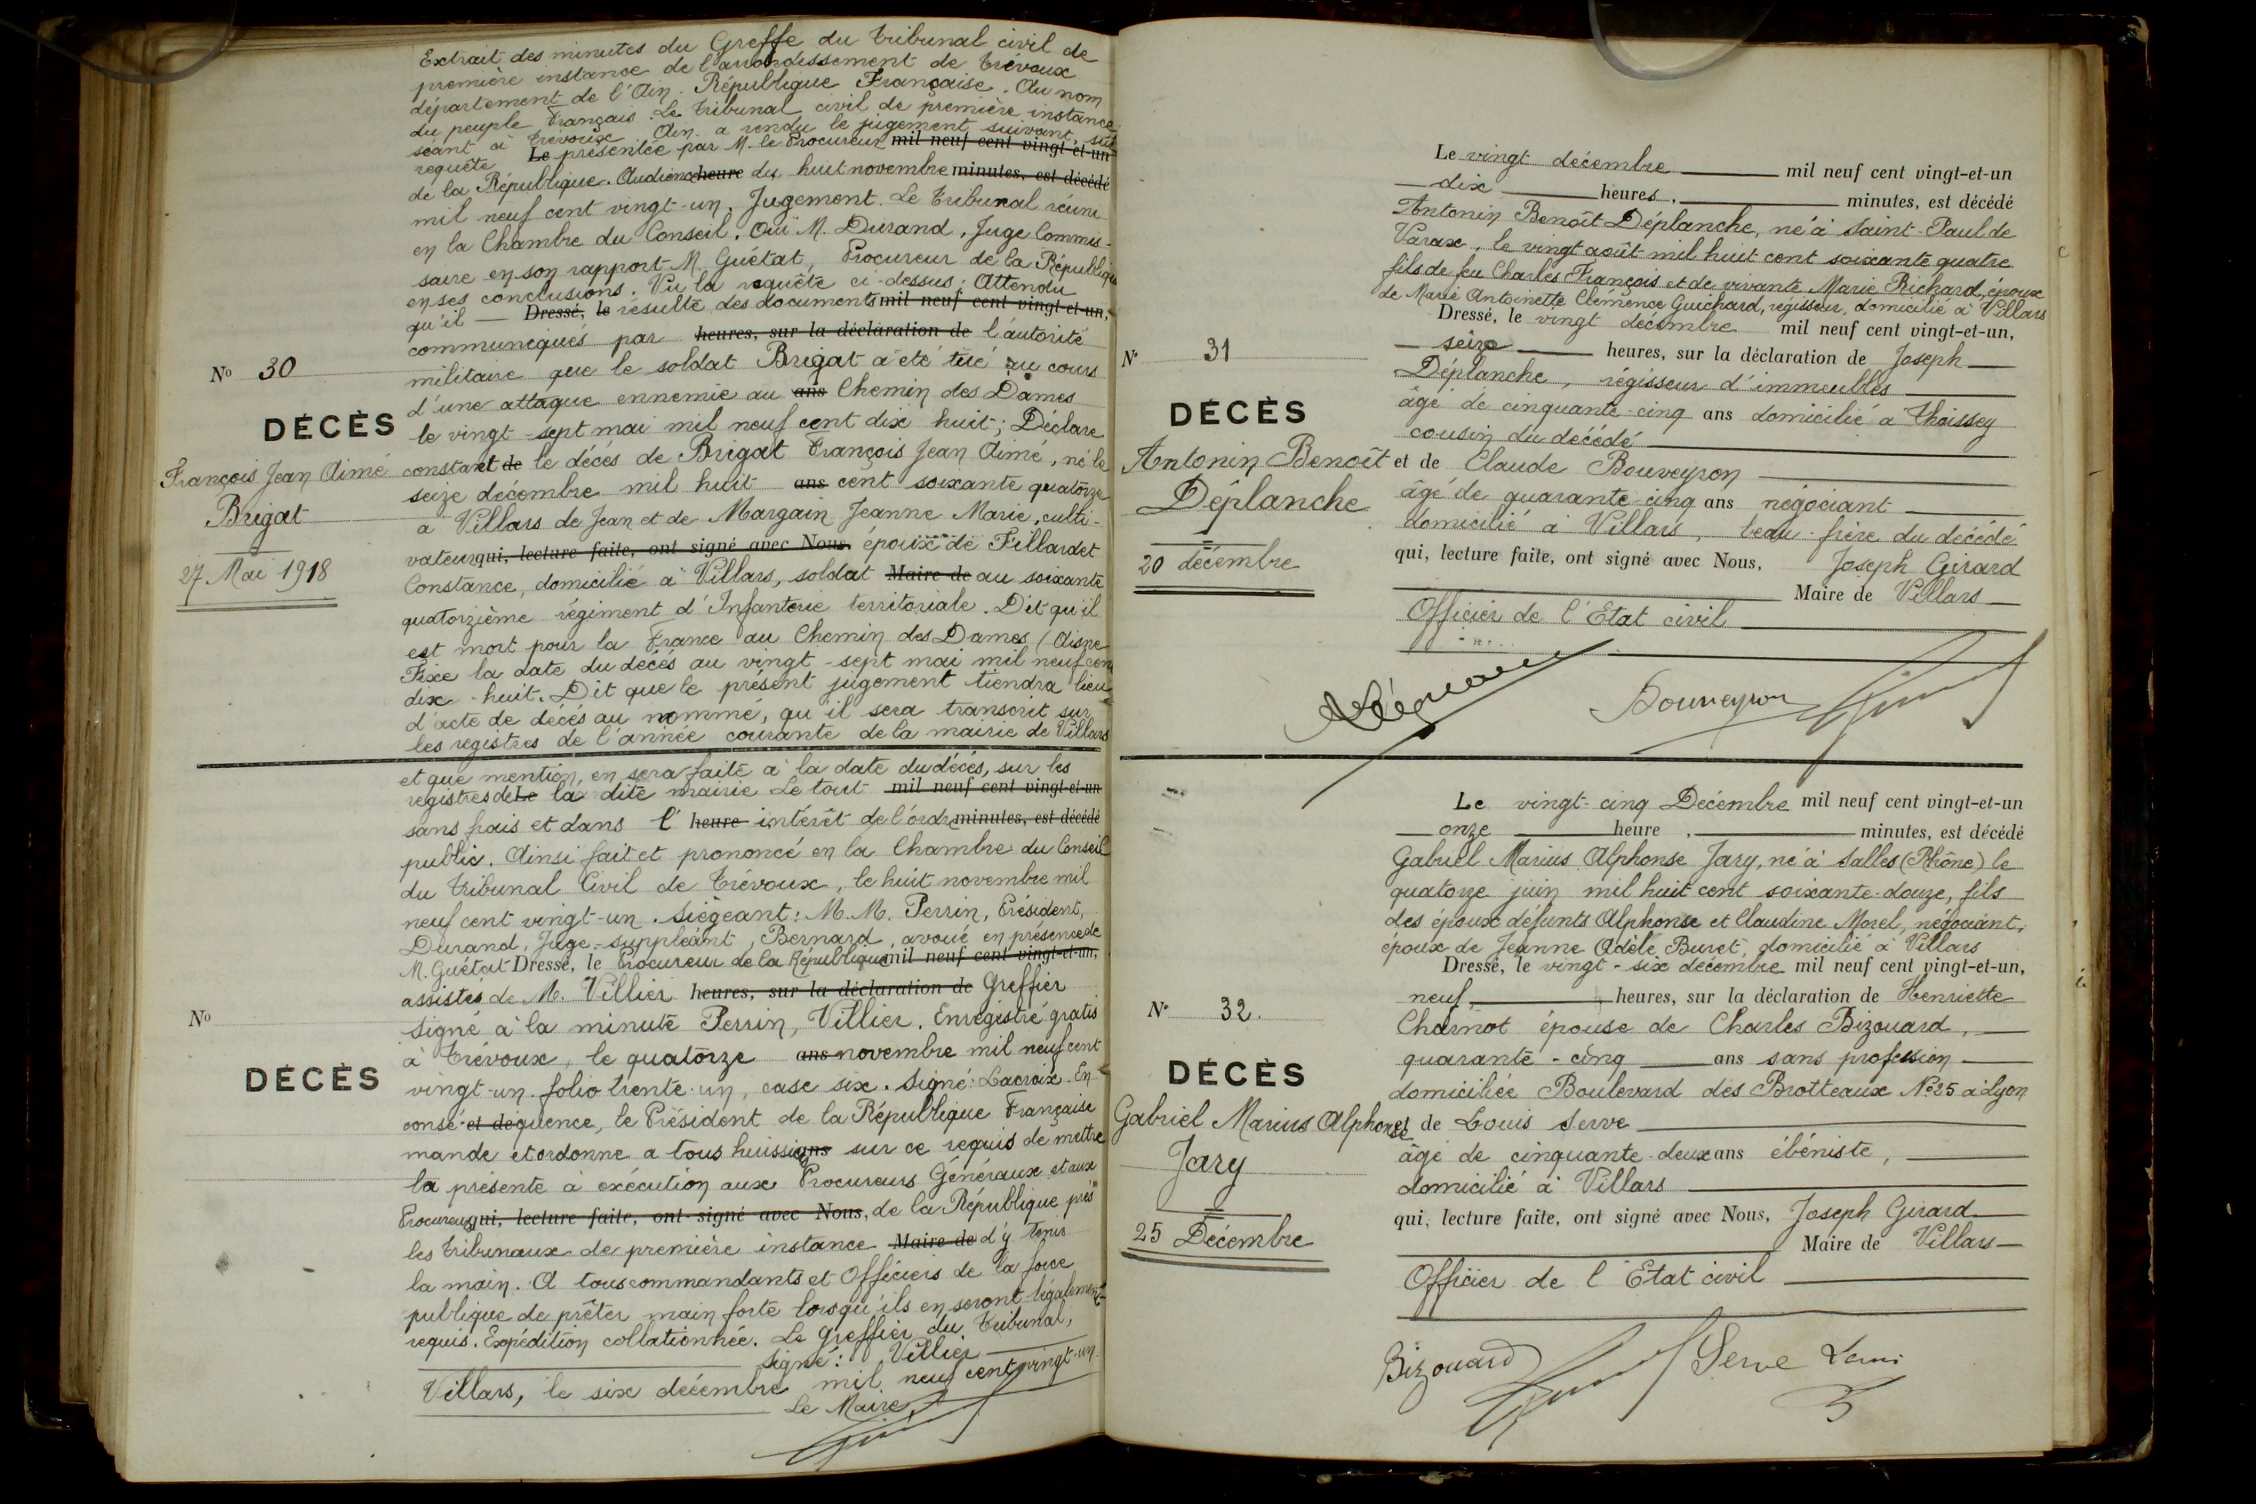 Extrait des minutes du Greffe du Tribunal civil de
première instance de l'arrondissement de Trévoux
département de l'Ain. République Française. Au nom
du peuple Français. Le Tribunal civil de première instance
séant à Trévoux Ain a rendu le jugement suivant sur
requête Le présentée par M. le Procureur mil neuf cent vingt-et-un
de la République. Audience heure du huit novembre minutes, est décédé
mil neuf cent vingt-un. Jugement. Le Tribunal réuni
en la Chambre du Conseil. Ouï M. Durand, Juge Commis-
saire en son rapport M. Guétat, Procureur de la République
en ses conclusions. Vu la requête ci-dessus; Attendu
qu'il — Dressé, le résulte des documents mil neuf cent vingt-et-un,
communiqués par heures, sur la déclaration de l'autorité
militaire que le soldat Brigat a été tué au cours
d'une attaque ennemie au ans Chemin des Dames
le vingt-sept mai mil neuf cent dix huit; Déclare
constant de le décès de Brigat François Jean Aimé, né le
seize décembre mil huit ans cent soixante quatorze
à Villars de Jean et de Margain Jeanne Marie, culti-
vateur qui, lecture faite, ont signé avec Nous, époux de Fillardet
Constance, domicilié à Villars, soldat Maire de au soixante
quatorzième régiment d'Infanterie territoriale. Dit qu'il
est mort pour la France au Chemin des Dames (Aisne
Fixe la date du décès au vingt-sept mai mil neuf cent
dix-huit. Dit que le présent jugement tiendra lieu
d'acte de décès au nommé, qu'il sera transcrit sur
les registres de l'année courante de la mairie de Villars
No 30
DÉCÈS
François Jean Aimé
Brigat
27 Mai 1918
et que mention en sera faite à la date du décès, sur les
registres de Le la dite mairie Le tout mil neuf cent vingt-et-un
sans frais et dans l' heure intérêt de l'ordre minutes, est décédé
public. Ainsi fait et prononcé en la Chambre du Conseil
du Tribunal Civil de Trévoux, le huit novembre mil
neuf cent vingt-un. Siégeant: M.M. Perrin, Président,
Durand, Juge-suppléant, Bernard, avoué en présence de
M. Guétat Dressé, le Procureur de la République mil neuf cent vingt-et-un,
assistés de M. Villier heures, sur la déclaration de Greffier
Signé à la minute Perrin, Villier. Enregistré gratis
à Trévoux, le quatorze ans novembre mil neuf cent
vingt-un folio trente-un, case six. Signé: Lacroix. En
consé-et de quence, le Président de la République Française
mande et ordonne a tous huissiers ans sur ce requis de mettre
la présente à exécution aux Procureurs Généraux et aux
Procureurs qui, lecture faite, ont signé avec Nous, de la République près
les Tribunaux de première instance Maire de d'y tenir
la main. A tous commandants et Officiers de la force
publique de prêter main forte lorsqu'ils en seront légalement
requis. Expédition collationnée. Le Greffier du Tribunal,
Signé: Villier
Villars, le six décembre mil neuf cent vingt-un
Le Maire
No
DÉCÈS
Le vingt décembre mil neuf cent vingt-et-un
dix heures, minutes, est décédé
Antonin Benoît Déplanche, né à Saint-Paul de
Varax, le vingt août mil huit cent soixante quatre
fils de feu Charles François et de vivante Marie Richard, époux
de Marie Antoinette Clémence Guichard, régisseur, domicilié à Villars
Dressé, le vingt décembre mil neuf cent vingt-et-un,
seize heures, sur la déclaration de Joseph
Déplanche, régisseur d'immeubles
âgé de cinquante-cinq ans domicilié à Thoissey
cousin du décédé
et de Claude Bouveyron
âgé de quarante-cinq ans négociant
domicilié à Villars, beau-frère du décédé
qui, lecture faite, ont signé avec Nous, Joseph Girard
Maire de Villars
Officier de l'Etat civil
Bouveyron
No 31
DÉCÈS
Antonin Benoît
Déplanche
20 décembre
Le vingt-cinq Décembre mil neuf cent vingt-et-un
onze heure, minutes, est décédé
Gabriel Marius Alphonse Jary, né à Salles (Rhône) le
quatorze juin mil huit cent soixante-douze, fils
des époux défunts Alphonse et Claudine Morel, négociant,
époux de Jeanne Adèle Buret, domicilié à Villars
Dressé, le vingt-six décembre mil neuf cent vingt-et-un,
neuf heures, sur la déclaration de Henriette
Charnot épouse de Charles Bizouard,
quarante-cinq ans sans profession
domiciliée Boulevard des Brotteaux No 25 à Lyon
et de Louis Serve
âgé de cinquante-deux ans ébéniste,
domicilié à Villars
qui, lecture faite, ont signé avec Nous, Joseph Girard
Maire de Villars
Officier de l'Etat civil
Bizouard Serve Louis
No 32.
DÉCÈS
Gabriel Marius Alphonse
Jary
25 Décembre